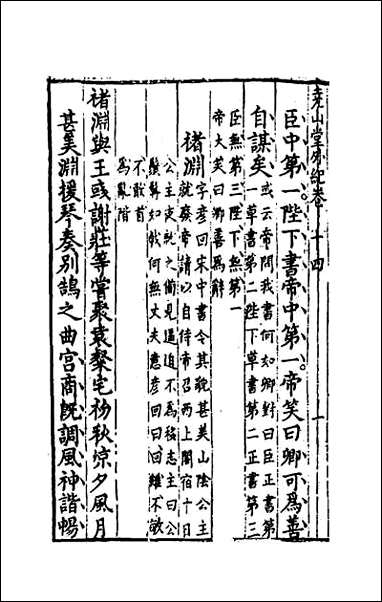 堯山堂外紀卷十四
一
臣中第一陛下書帝中第一帝笑曰卿可爲善
自謀矣或云帝問我書何如卿對曰臣正書第
一草書第二陛下草書第二正書第三
臣無第三陛下無第一
帝大笑曰卿善爲辭
褚淵字彦回宋中書令其貌甚美山陰公主
就廢帝請以自侍帝召西上閣宿十日
公主夜就之備見逼迫不爲移志主曰公
鬚髯如戟何無丈夫意彦回曰回雖不敏
不敢首
爲亂階
褚淵與王彧謝莊等嘗聚袁粲宅初秋凉夕風月
甚美淵援琴奏别鵠之曲宫商旣調風神諧暢